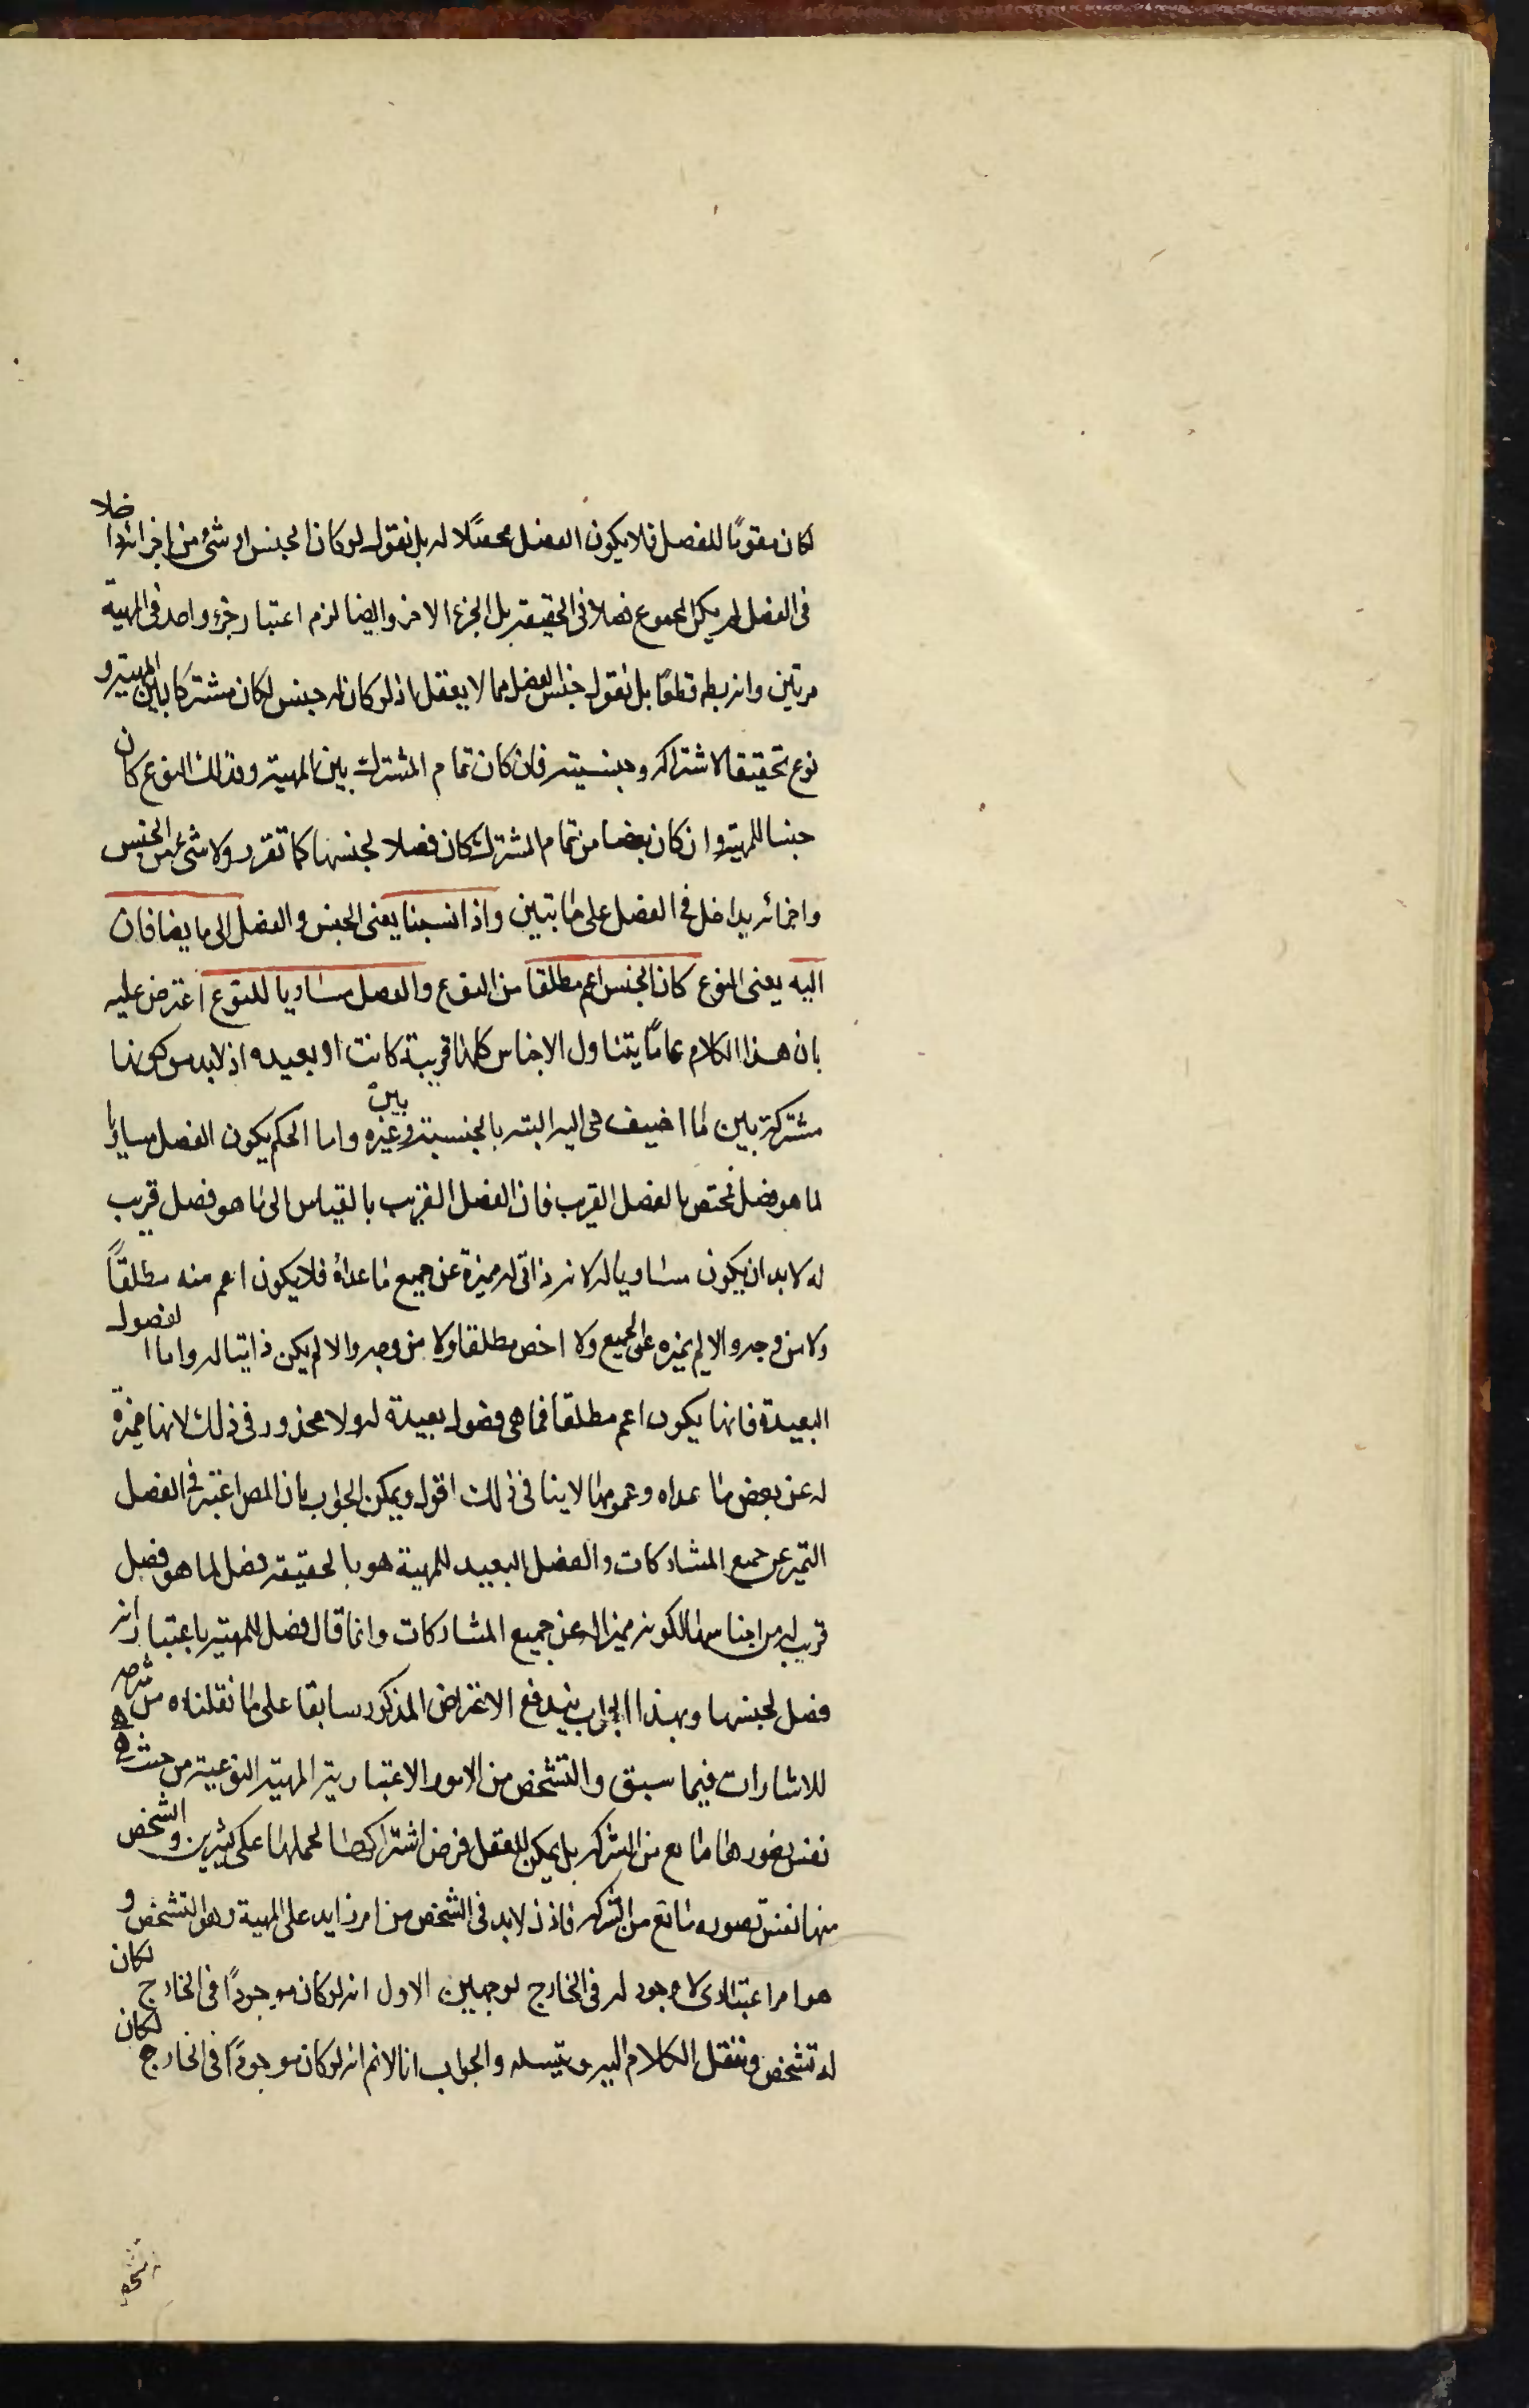 لكان مقومًا للفصل فلا يكون الفصل محصّلا له بل نقول لو كان الجنس او شئ من اجزائه داخلا
فى الفصل لم يكن المجموع فصلا فى الحقيقة بل الجزء الاخر وايضا لزم اعتبار جزء واحد فى المهية
مرتين وانه بط قطعًا بل نقول جنس الفصل مما لا يعقل اذ لو كان له جنس لكان مشتركا بين المهية و
نوع تحقيقا لاشتراكه وجنسيته فان كان تمام المشترك بين المهية وذلك النوع كان
جنسا للمهية وان كان بعضا من تمام المشترك كان فصلا لجنسها كما تقرر ولا شئ من الجنس
واجزائه بداخل فى الفصل على ما تبين واذا نسبنا يعنى الجنس والفصل الى ما يضافان
اليه يعنى النوع كان الجنس اعم مطلقا من النوع والفصل مساويا للنوع اعترض عليه
بان هذا الكلام عامًا يتناول الاجناس كلها قريبة كانت او بعيده اذ لابد من كونها
مشتركة بين ما اضيف هى اليه البته بالجنسية وبين غيره واما الحكم بكون الفصل مساويا
لما هو فصل فمختص بالفصل القريب فان الفصل القريب بالقياس الى ما هو فصل قريب
له لا بد ان يكون مساويا له لانه ذاتى له مميزة عن جميع ما عداه فلا يكون اعم منه مطلقًا
ولا من وجه والا لم يميزه عن الجميع ولا اخص مطلقا ولا من وجه والا لم يكن ذاتيا له واما الفصول
البعيدة فانها يكون اعم مطلقا مما هى فصول بعيدة له ولا محذور فى ذلك لانها مميزة
له عن بعض ما عداه وعمومها لا ينافى ذلك اقول ويمكن الجواب بان المص اعتبر فى الفصل
التميز عن جميع المشاركات والفصل البعيد للمهية هو بالحقيقة فصل لما هو فصل
قريب له من اجناسها لكونه مميزا له عن جميع المشاركات وانما قال فصل للمهية باعتبار انه
فصل لجنسها وبهذا الجواب يندفع الاعتراض المذكور سابقا على ما نقلناه من شرحه
للاشارات فيما سبق والتشخص من الامور الاعتبارية المهية النوعية من حيث هى
نفس تصورها مانع من الشركه بل يمكن للعقل فرض اشتراكها لحملها على كثيرين والشخص
منها نفس تصوره مانع من الشركه فاذن لابد فى الشخص من امر زايد على المهية وهو التشخص و
هو امر اعتبارى لا وجود له فى الخارج لوجهين الاول انه لو كان موجودًا فى الخارج لكان
له تشخص وننقل الكلام اليه ويتسلسل والجواب انا لا نم انه لو كان موجودًا فى الخارج لكان